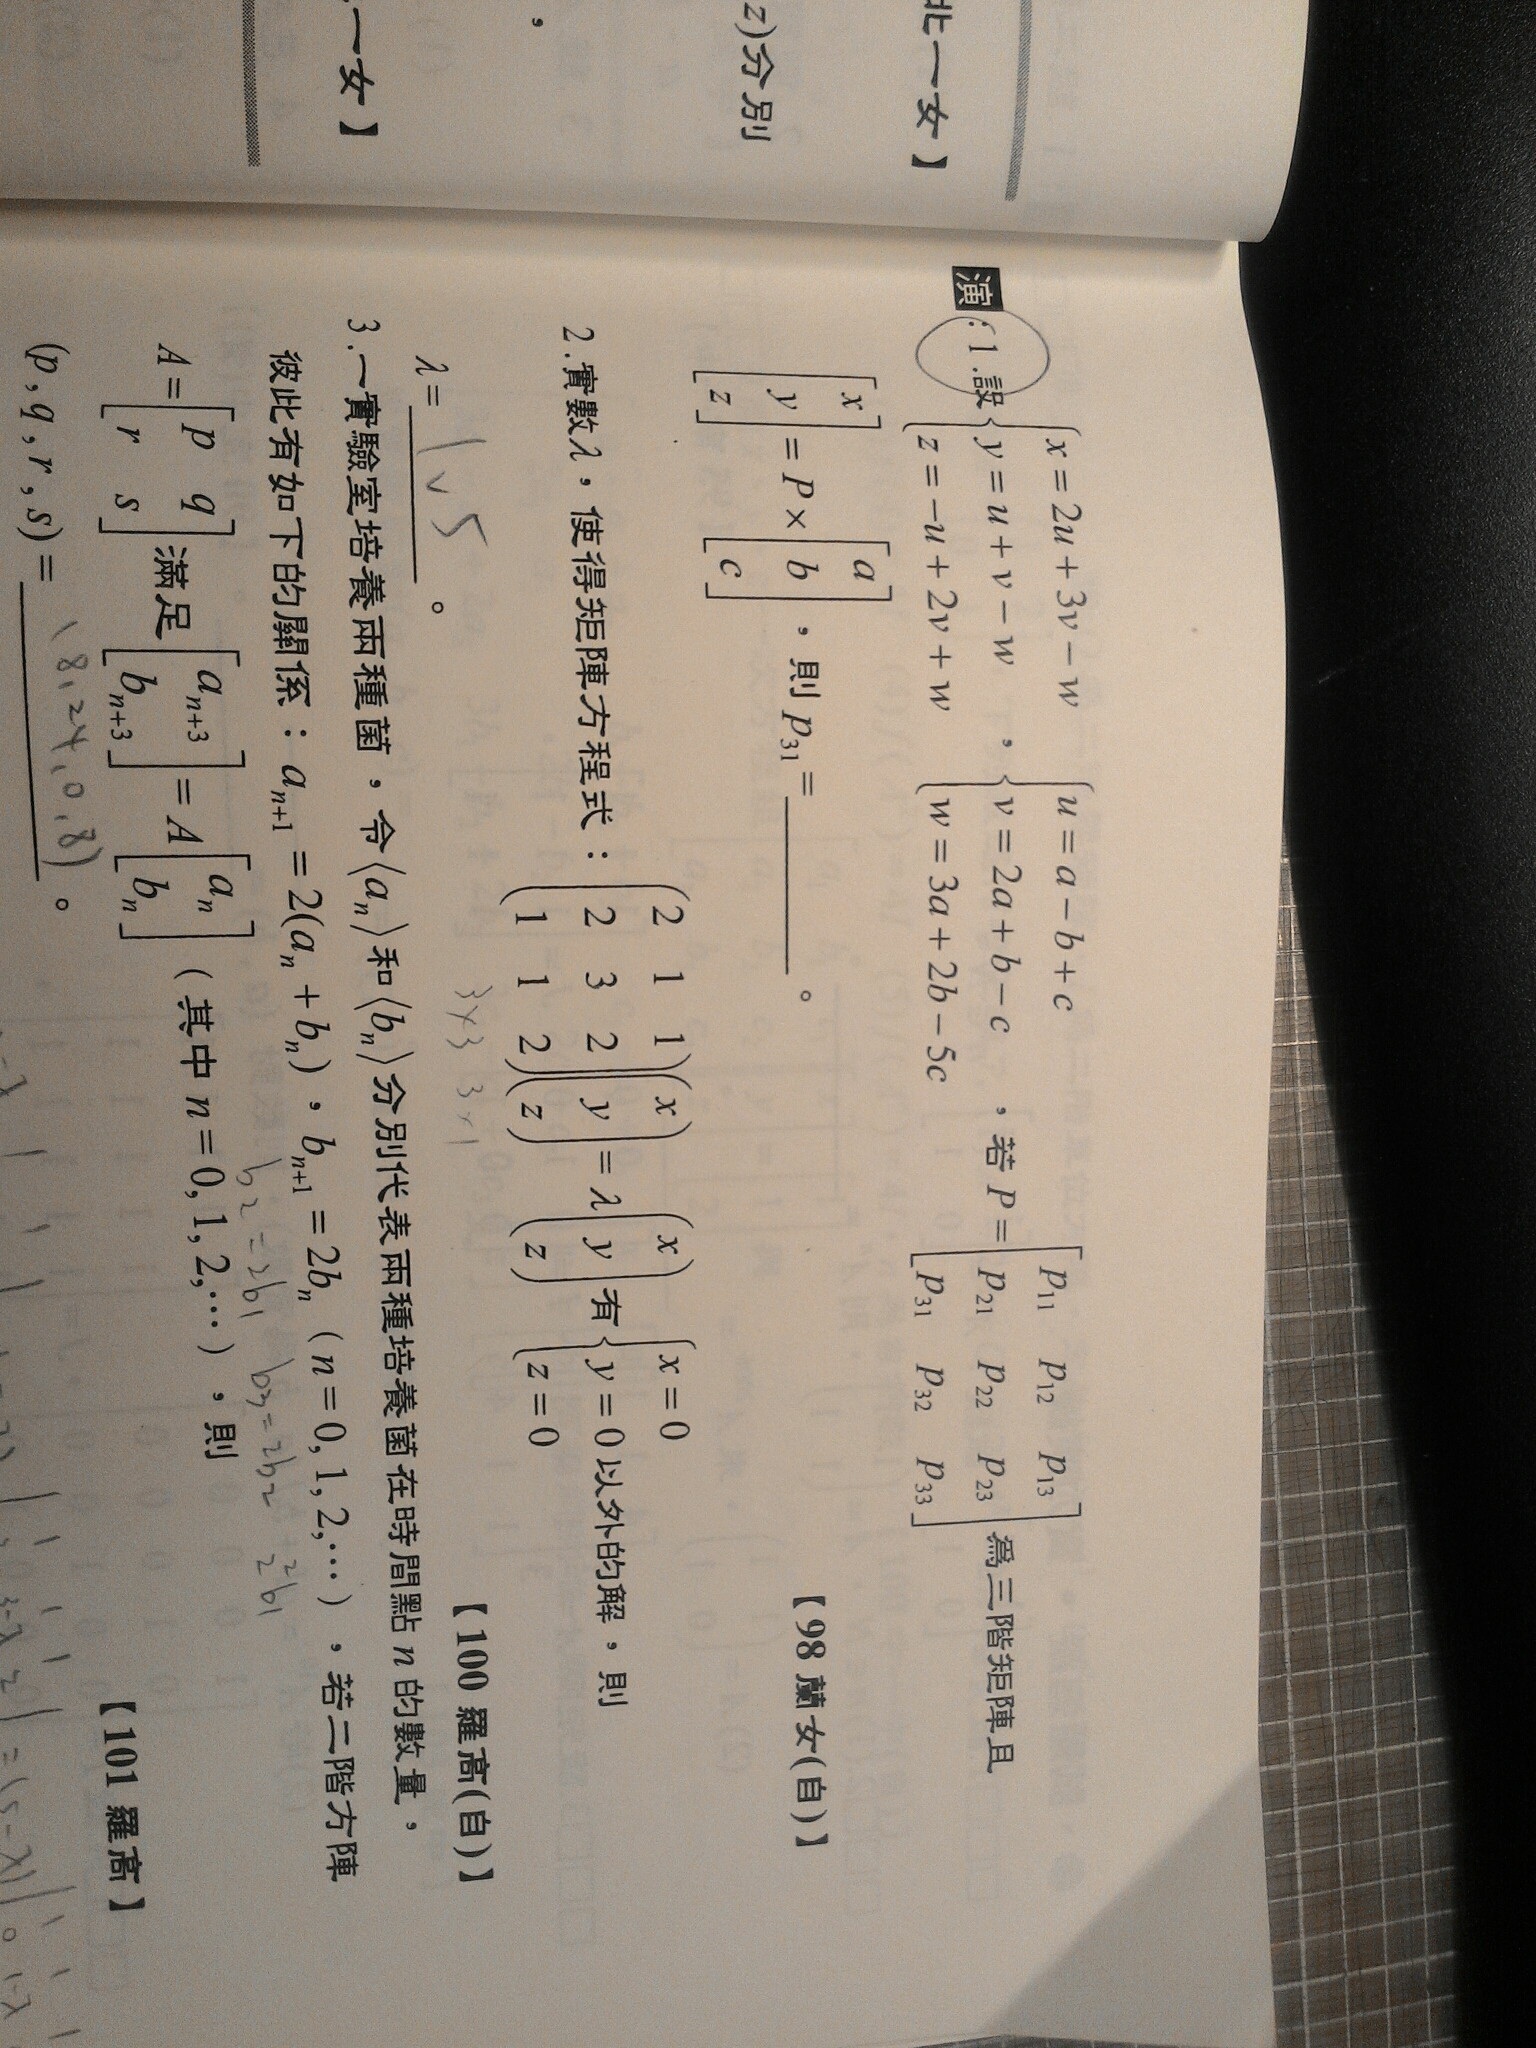 北一女】
z)分別
,
一女】
演:1.設{x=2u+3v-w, y=u+v-w, z=-u+2v+w,{u=a-b+c, v=2a+b-c, w=3a+2b-5c,若P=[p11 p12 p13; p21 p22 p23; p31 p32 p33]為三階矩陣且
[x; y; z]=P×[a; b; c],則p31=________。
【98蘭女(自)】
2.實數λ,使得矩陣方程式:(2 1 1; 2 3 2; 1 1 2)(x; y; z)=λ(x; y; z)有{x=0, y=0, z=0以外的解,則
λ=1∨5。
3×3 3×1
【100羅高(自)】
3.一實驗室培養兩種菌,令⟨an⟩和⟨bn⟩分別代表兩種培養菌在時間點n的數量,
彼此有如下的關係:an+1=2(an+bn),bn+1=2bn(n=0,1,2,…),若二階方陣
b2=2b1 b3=2b2=2²b1
A=[p q; r s]滿足[an+3; bn+3]=A[an; bn](其中n=0,1,2,…),則
(p,q,r,s)=(8,24,0,8)。
【101羅高】